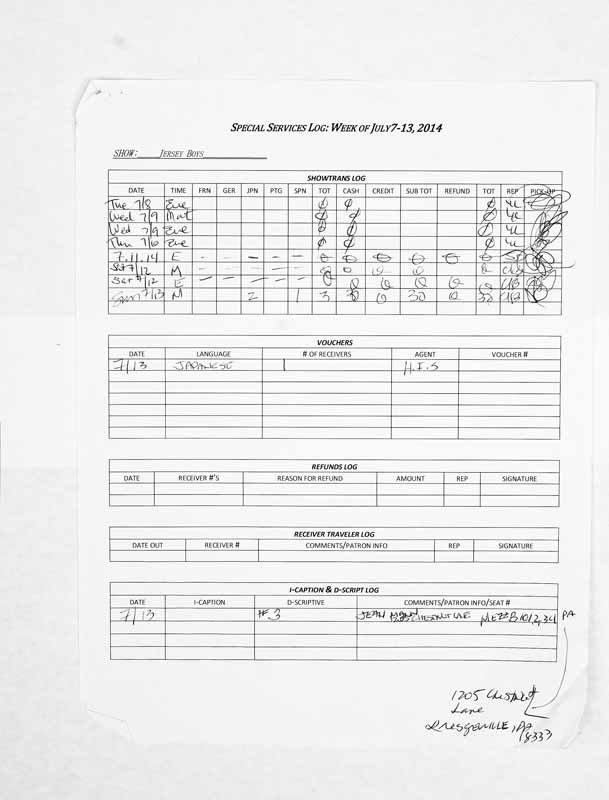 SPECIAL SERVICES LOG: WEEK OF JULY7-13, 2014
SHOW: JERSEY BOYS
SHOWTRANS LOG
DATE TIME FRN GER JPN PTG SPN TOT CASH CREDIT SUB TOT REFUND TOT REP PICK-UP
Tue 7/8 Eve ∅ ∅ ∅ YL
Wed 7/9 Mat ∅ ∅ ∅ YL
Wed 7/9 Eve ∅ ∅ ∅ YL
Thu 7/10 Eve ∅ ∅ ∅ YL
7.11.14 E - - - - - 0 0 0 0 0 0
Sat 7/12 M 0 0 0 0 0
Sat 7/12 E 0 0 0 0 0 0
Sun 7/13 M 2 1 3 30 0 30 0 30
VOUCHERS
DATE LANGUAGE # OF RECEIVERS AGENT VOUCHER #
7/13 JAPANESE 1 H.I.S
REFUNDS LOG
DATE RECEIVER #'S REASON FOR REFUND AMOUNT REP SIGNATURE
RECEIVER TRAVELER LOG
DATE OUT RECEIVER # COMMENTS/PATRON INFO REP SIGNATURE
I-CAPTION & D-SCRIPT LOG
DATE I-CAPTION D-SCRIPTIVE COMMENTS/PATRON INFO/SEAT #
7/13 #3 JEAN MANN CHESTNUT LNE MEZZ B 101,2,3,4 PA
1205 Chestnut
Lane
PA
18333